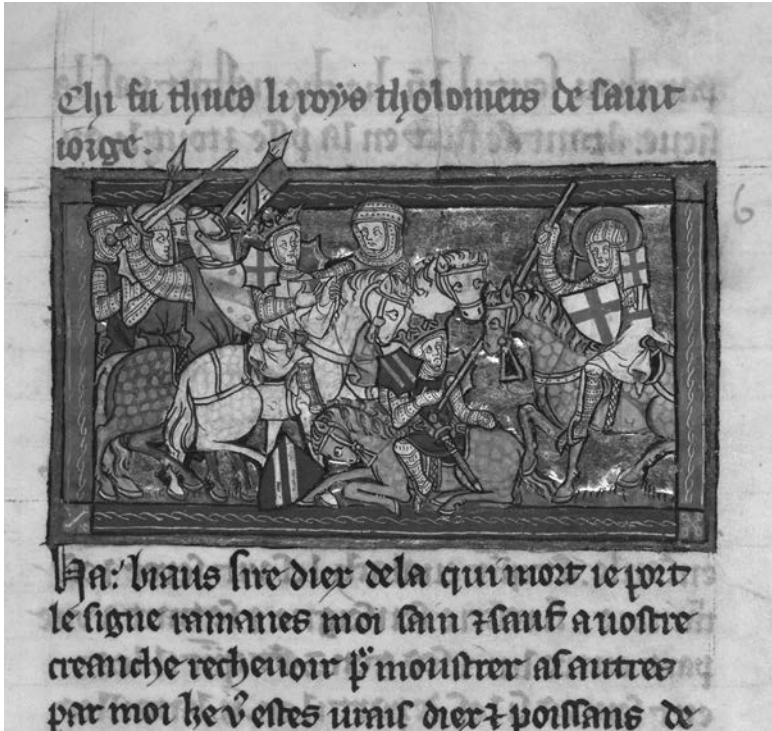 Chi fu thues li roys tholomers de saint
iorge.
6
Ha: biaus sire diex dela qui mort ie port
le signe ramanes moi sain ⁊ sauf a uostre
creanche rechenoir p̄ moustrer as autres
par moi ke v̄ estes urais diex ⁊ poissans de